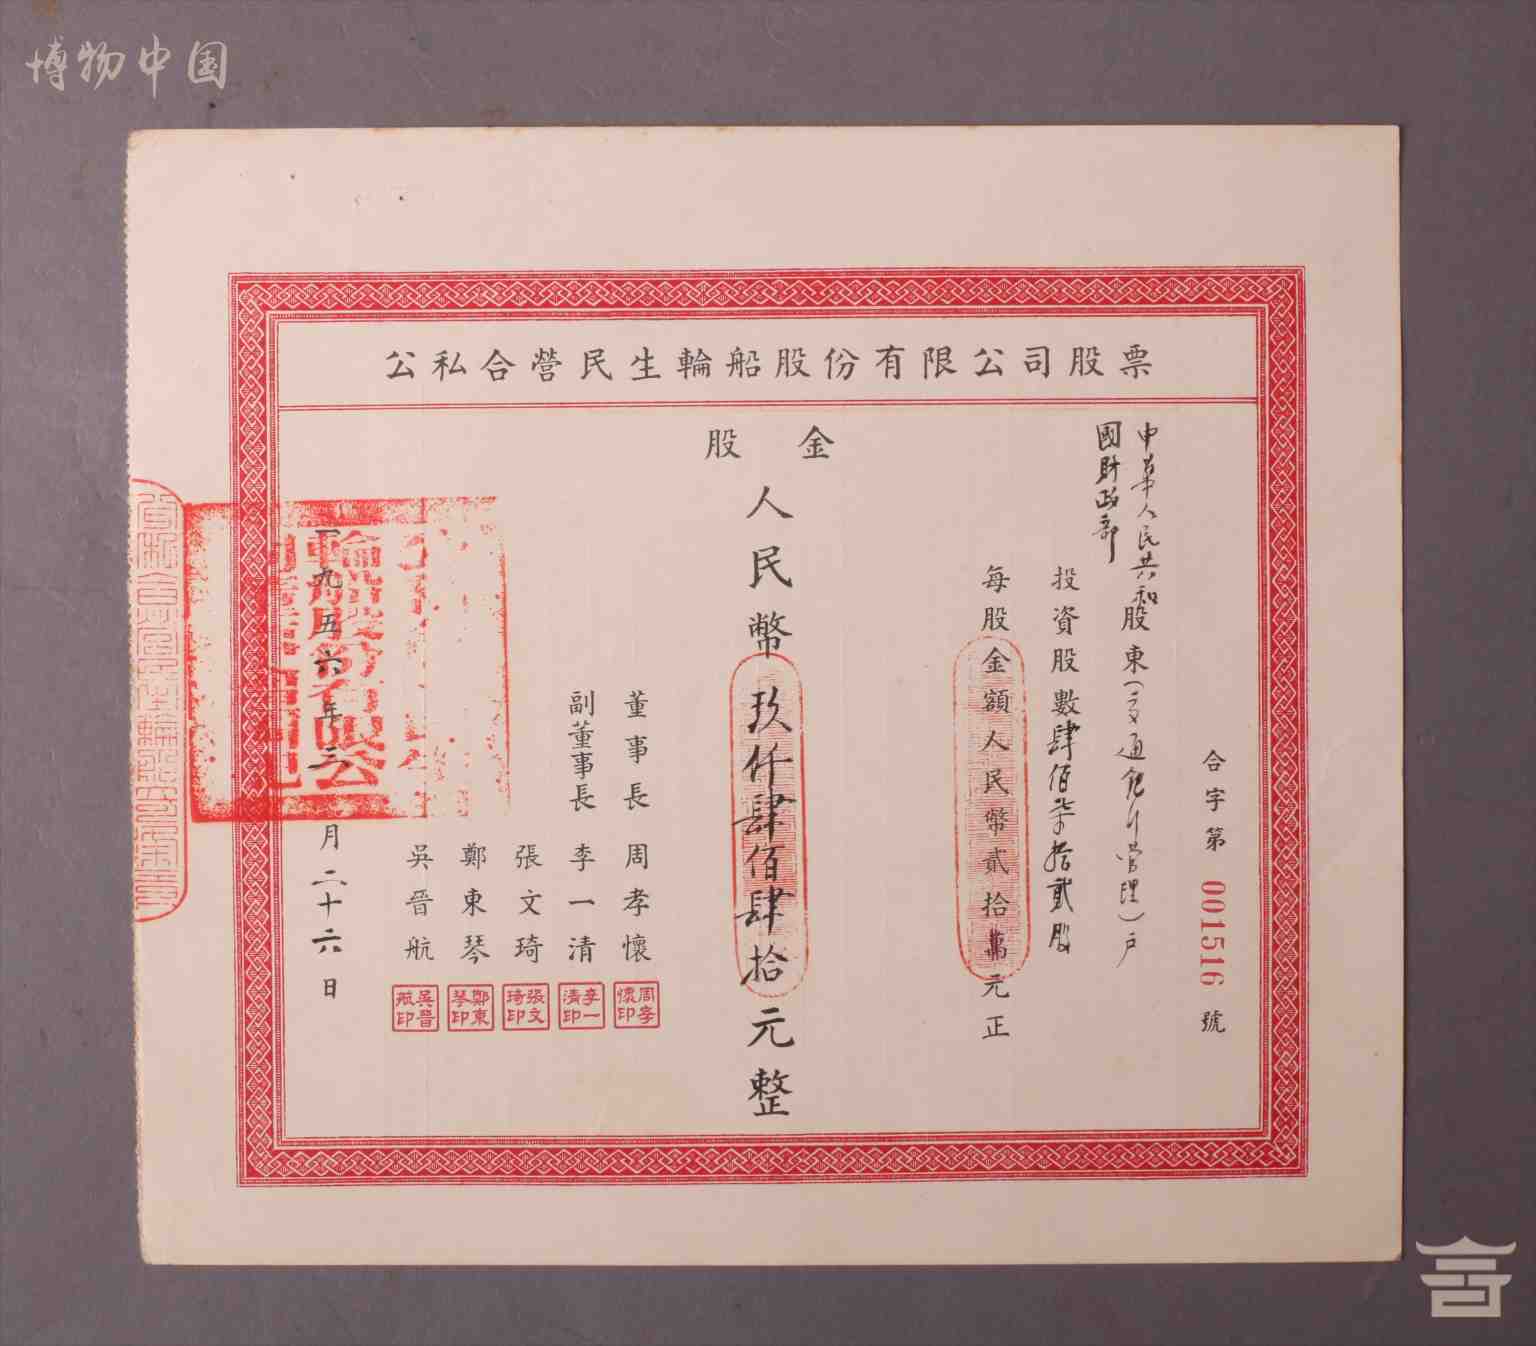 博物中国
公私合營民生輪船股份有限公司股票
合字第001516號
中華人民共和國財政部
股東(交通銀行管理)戶
投資股數肆佰柒拾貳股
每股金額人民幣貳拾萬元正
股金
人民幣玖仟肆佰肆拾元整
董事長 周孝懷
副董事長 李一清
張文琦
鄭東琴
吳晉航
周孝懷印
李一清印
張文琦印
鄭東琴印
吳晉航印
一九五六年三月二十六日